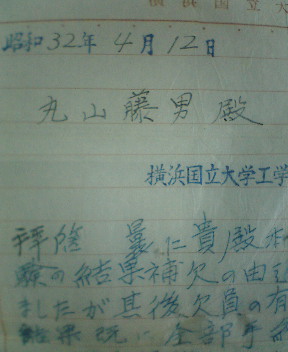 横浜国立大
昭和32年4月12日
丸山藤男殿
横浜国立大学工学
拝啓 曩に貴殿本
験の結果補欠の由通
ましたが其後欠員の有
結果既に全部手続